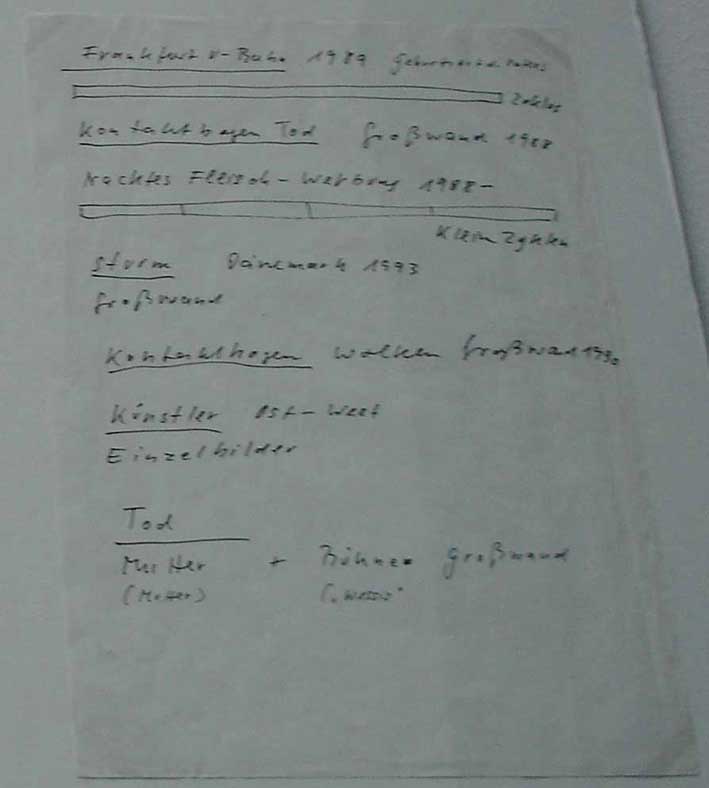 Frankfurt U-Bahn 1989
Kontaktbogen Tod Großwand 1988
Nacktes Fleisch - Werbung 1988-
Klein Zyklen
Sturm Dänemark 1993
Großwand
Kontaktbogen Wolken Großwand
Künstler Ost-West
Einzelbilder
Tod
Mutter + Bühne Großwand
(Mutter)